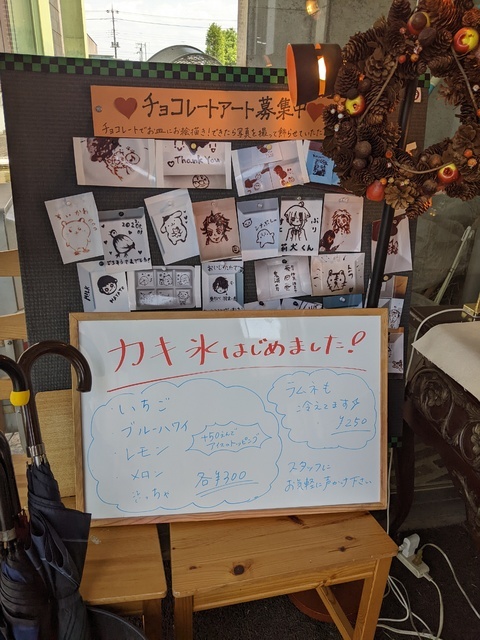 チョコレートアート募集中
チョコレートでお皿にお絵描き!できたら写真を撮って飾らせていただ
Thank You
カキ氷はじめました!
いちご
ブルーハワイ
レモン
メロン
まっちゃ
+50えんで
アイストッピング
各¥300
ラムネも
冷えてます
¥250
スタッフに
お気軽に声かけ下さい